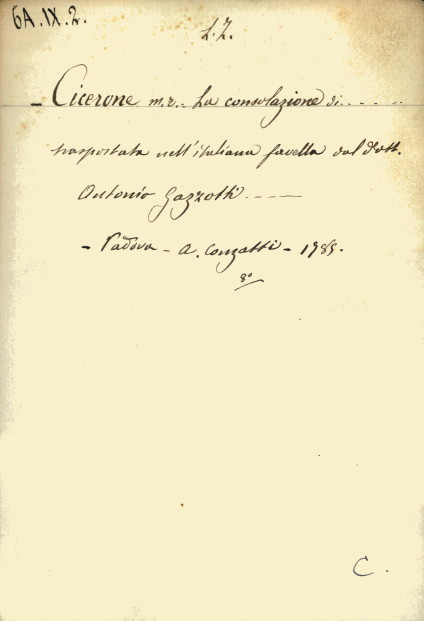 6A.IX.2.
L.Z.
- Cicerone m.t. - La consolazione di - - - - -
trasportata nell'italiana favella dal dott.
Antonio Gazzotti - - - -
- Padova - A. Conzatti - 1785.
8°
C.